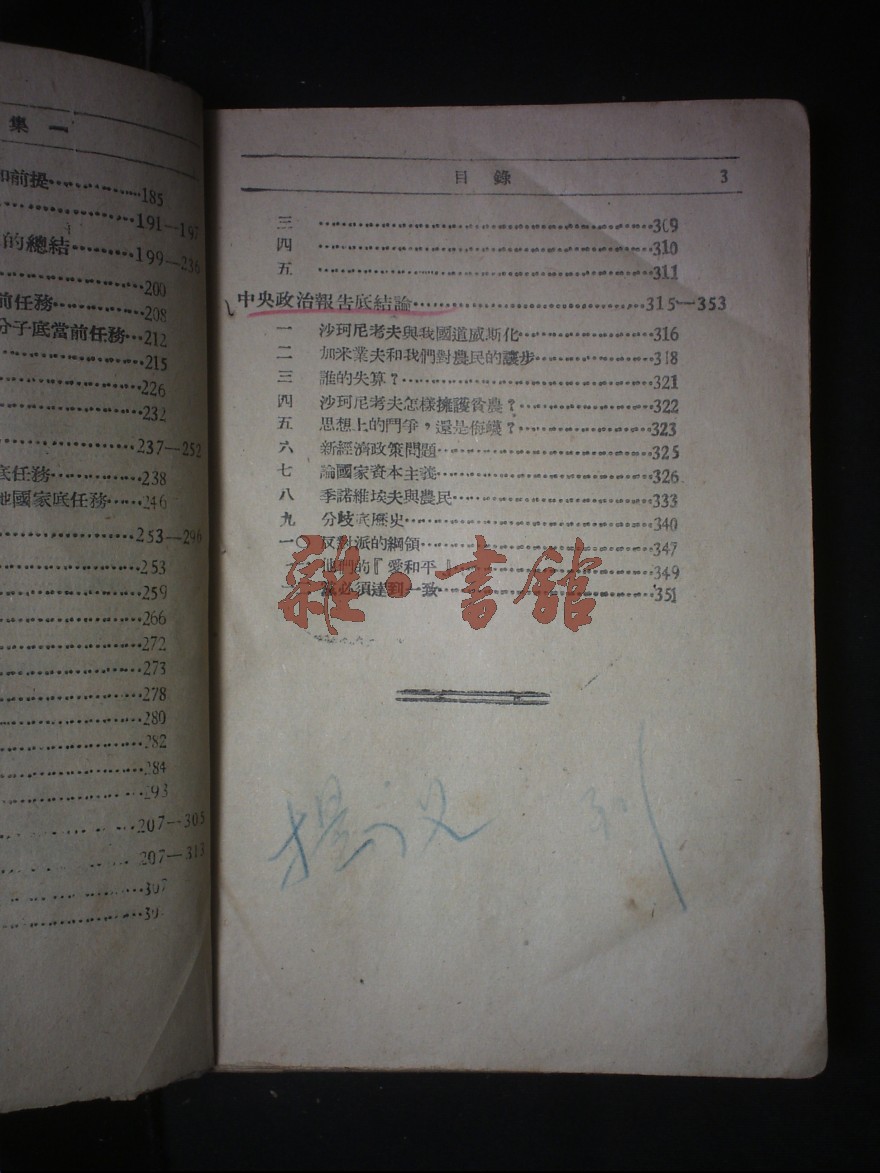 集一
和前提……………185
……191—197
的總結………199—236
……200
前任務……208
分子底當前任務…212
……215
……226
……232
……237—252
底任務……238
他國家底任務……246
……253—296
……253
……259
……266
……272
……273
……278
……280
……282
……284
……293
……207—305
……207—313
……307
目錄 3
三 ……309
四 ……310
五 ……311
中央政治報告底結論……315—353
一 沙珂尼考夫與我國道威斯化……316
二 加米業夫和我們對農民的讓步……318
三 誰的失算？……321
四 沙珂尼考夫怎樣擁護貧農？……322
五 思想上的鬥爭，還是侮蠛？……323
六 新經濟政策問題……325
七 論國家資本主義……326
八 季諾維埃夫與農民……333
九 分歧底歷史……340
一〇 反對派的綱領……347
他們的『愛和平』……349
黨必須達到一致……351
雜·書館